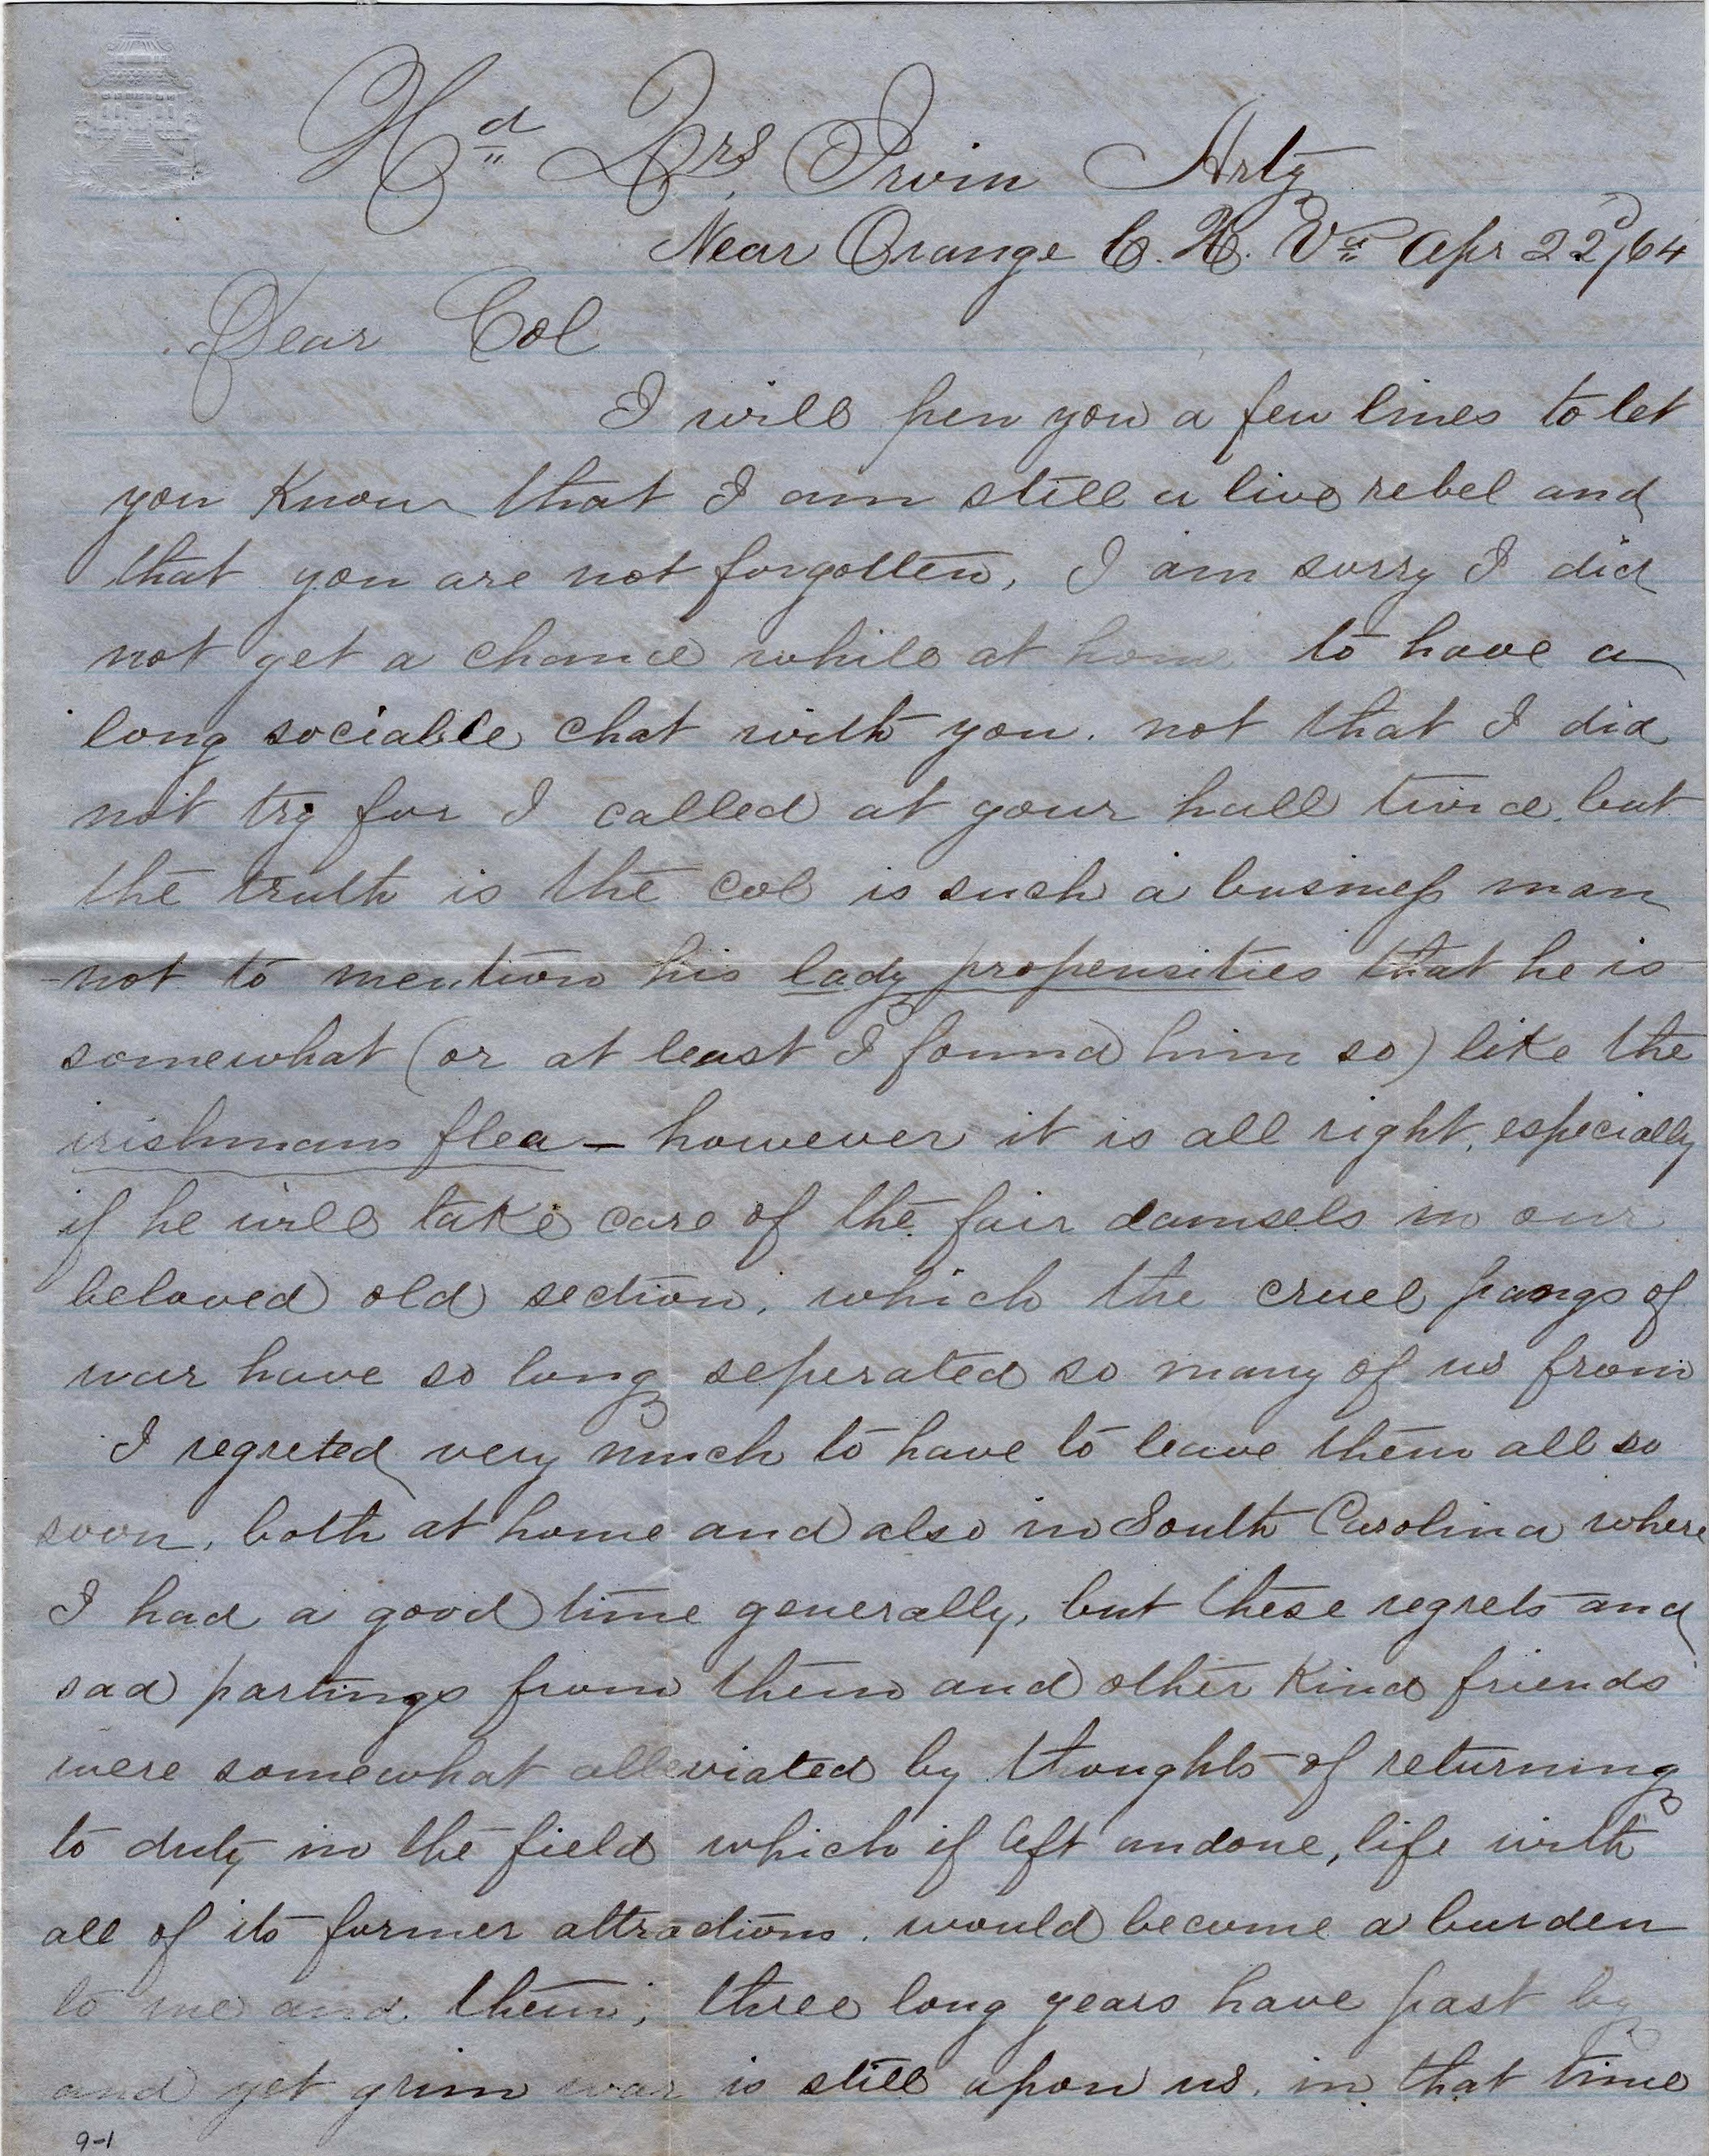 Hd Qrs Irvin Arty
Near Orange C. H. Va Apr 22d/64
Dear Col
I will pen you a few lines to let
you Know that I am still a live rebel and
that you are not forgotten, I am sorry I did
not get a chance while at home to have a
long sociable chat with you. not that I did
not try for I called at your hall twice, but
the truth is the Col is such a business man
not to mention his lady propensities that he is
somewhat (or at least I found him so) like the
irishmans flea — however it is all right, especially
if he will take care of the fair damsels in our
beloved old section, which the cruel pangs of
war have so long seperated so many of us from
I regreted very much to have to leave them all so
soon, both at home and also in South Carolina where
I had a good time generally, but these regrets and
sad partings from them and other Kind friends
were somewhat alleviated by thoughts of returning
to duty in the field which if left undone, life with
all of its former attractions. would become a burden
to me and them; three long years have past by
and yet grim war is still upon us, in that time
9-1